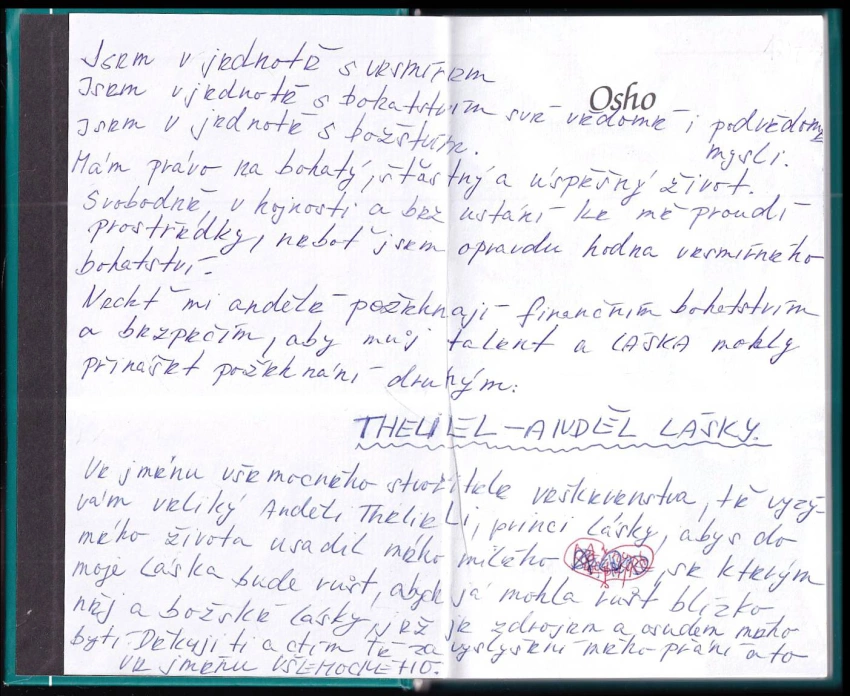 Jsem v jednotě s vesmírem
Osho
Jsem v jednotě s bohatstvím své vědomé i podvědomé
mysli.
Jsem v jednotě s božstvím.
Mám právo na bohatý, šťastný a úspěšný život.
Svobodně, v hojnosti a bez ustání ke mě proudí
prostředky, neboť jsem opravdu hodna vesmírného
bohatství.
Nechť mi andělé požehnají finančním bohatstvím
a bezpečím, aby můj talent a LÁSKA mohly
přinášet požehnání druhým:
THELIEL-ANDĚL LÁSKY.
Ve jménu všemocného stvořitele veškerenstva, tě vyzý-
vám veliký Anděli Thelieli, princi lásky, abys do
mého života usadil mého milého , se kterým
moje Láska bude růst, abych já mohla růst blízko
něj a božské lásky, jež je zdrojem a osudem mého
bytí. Děkuji ti a ctím tě za vyslyšení mého přání a to
ve jménu VŠEMOCNÉHO.